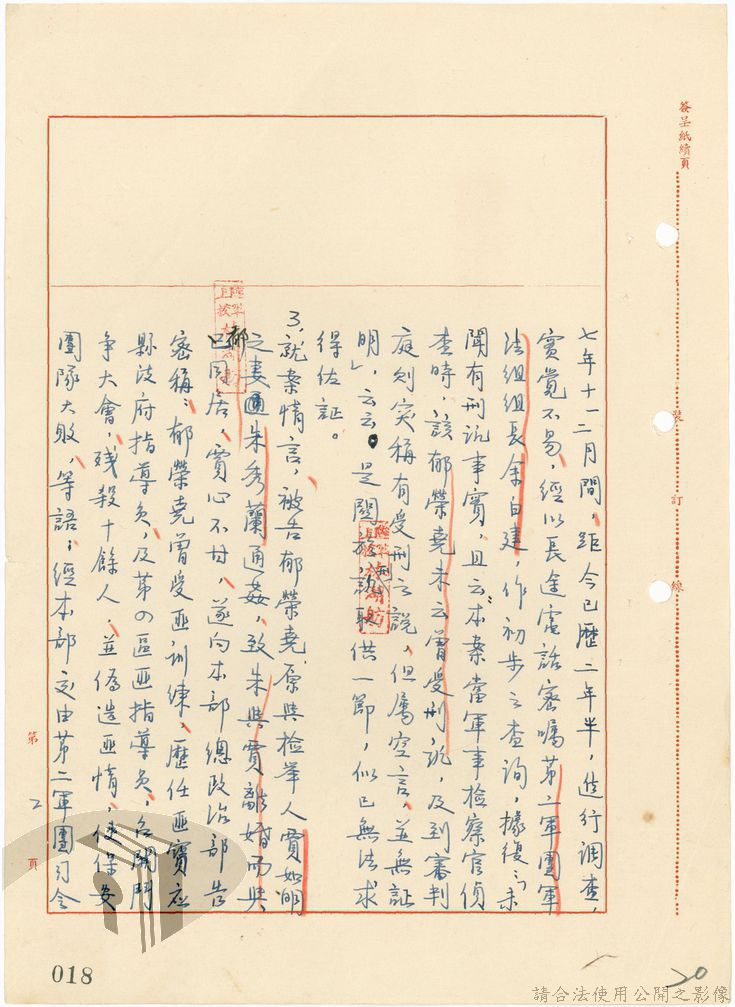 簽呈紙續頁
裝
訂
線
七年十一二月間，距今已歷二年半，進行調查，
實覺不易，經以長途電話密囑第二軍團軍
法組組長余白建，作初步之查詢，據復「未
聞有刑訊事實，且云本案當軍事檢察官偵
查時，該郁榮堯未云曾受刑訊，及到審判
庭則突稱有受刑之說，但屬空言，並無証
明」云云。是關於刑訊取供一節，似已無法求
得佐証。
3、就案情言，被告郁榮堯，原與檢舉人賈如明
之妻朱秀蘭通姦，致朱與賈離婚而與
郁同居，賈心不甘，遂向本部總政治部告
密稱：郁榮堯曾受匪訓練，歷任匪寶應
縣政府指導員，及第四區匪指導員，召開鬥
爭大會，殘殺十餘人，並偽造匪情，使保安
團隊大敗，等語，經本部交由第二軍團司令
第 2 頁
018
20
請合法使用公開之影像